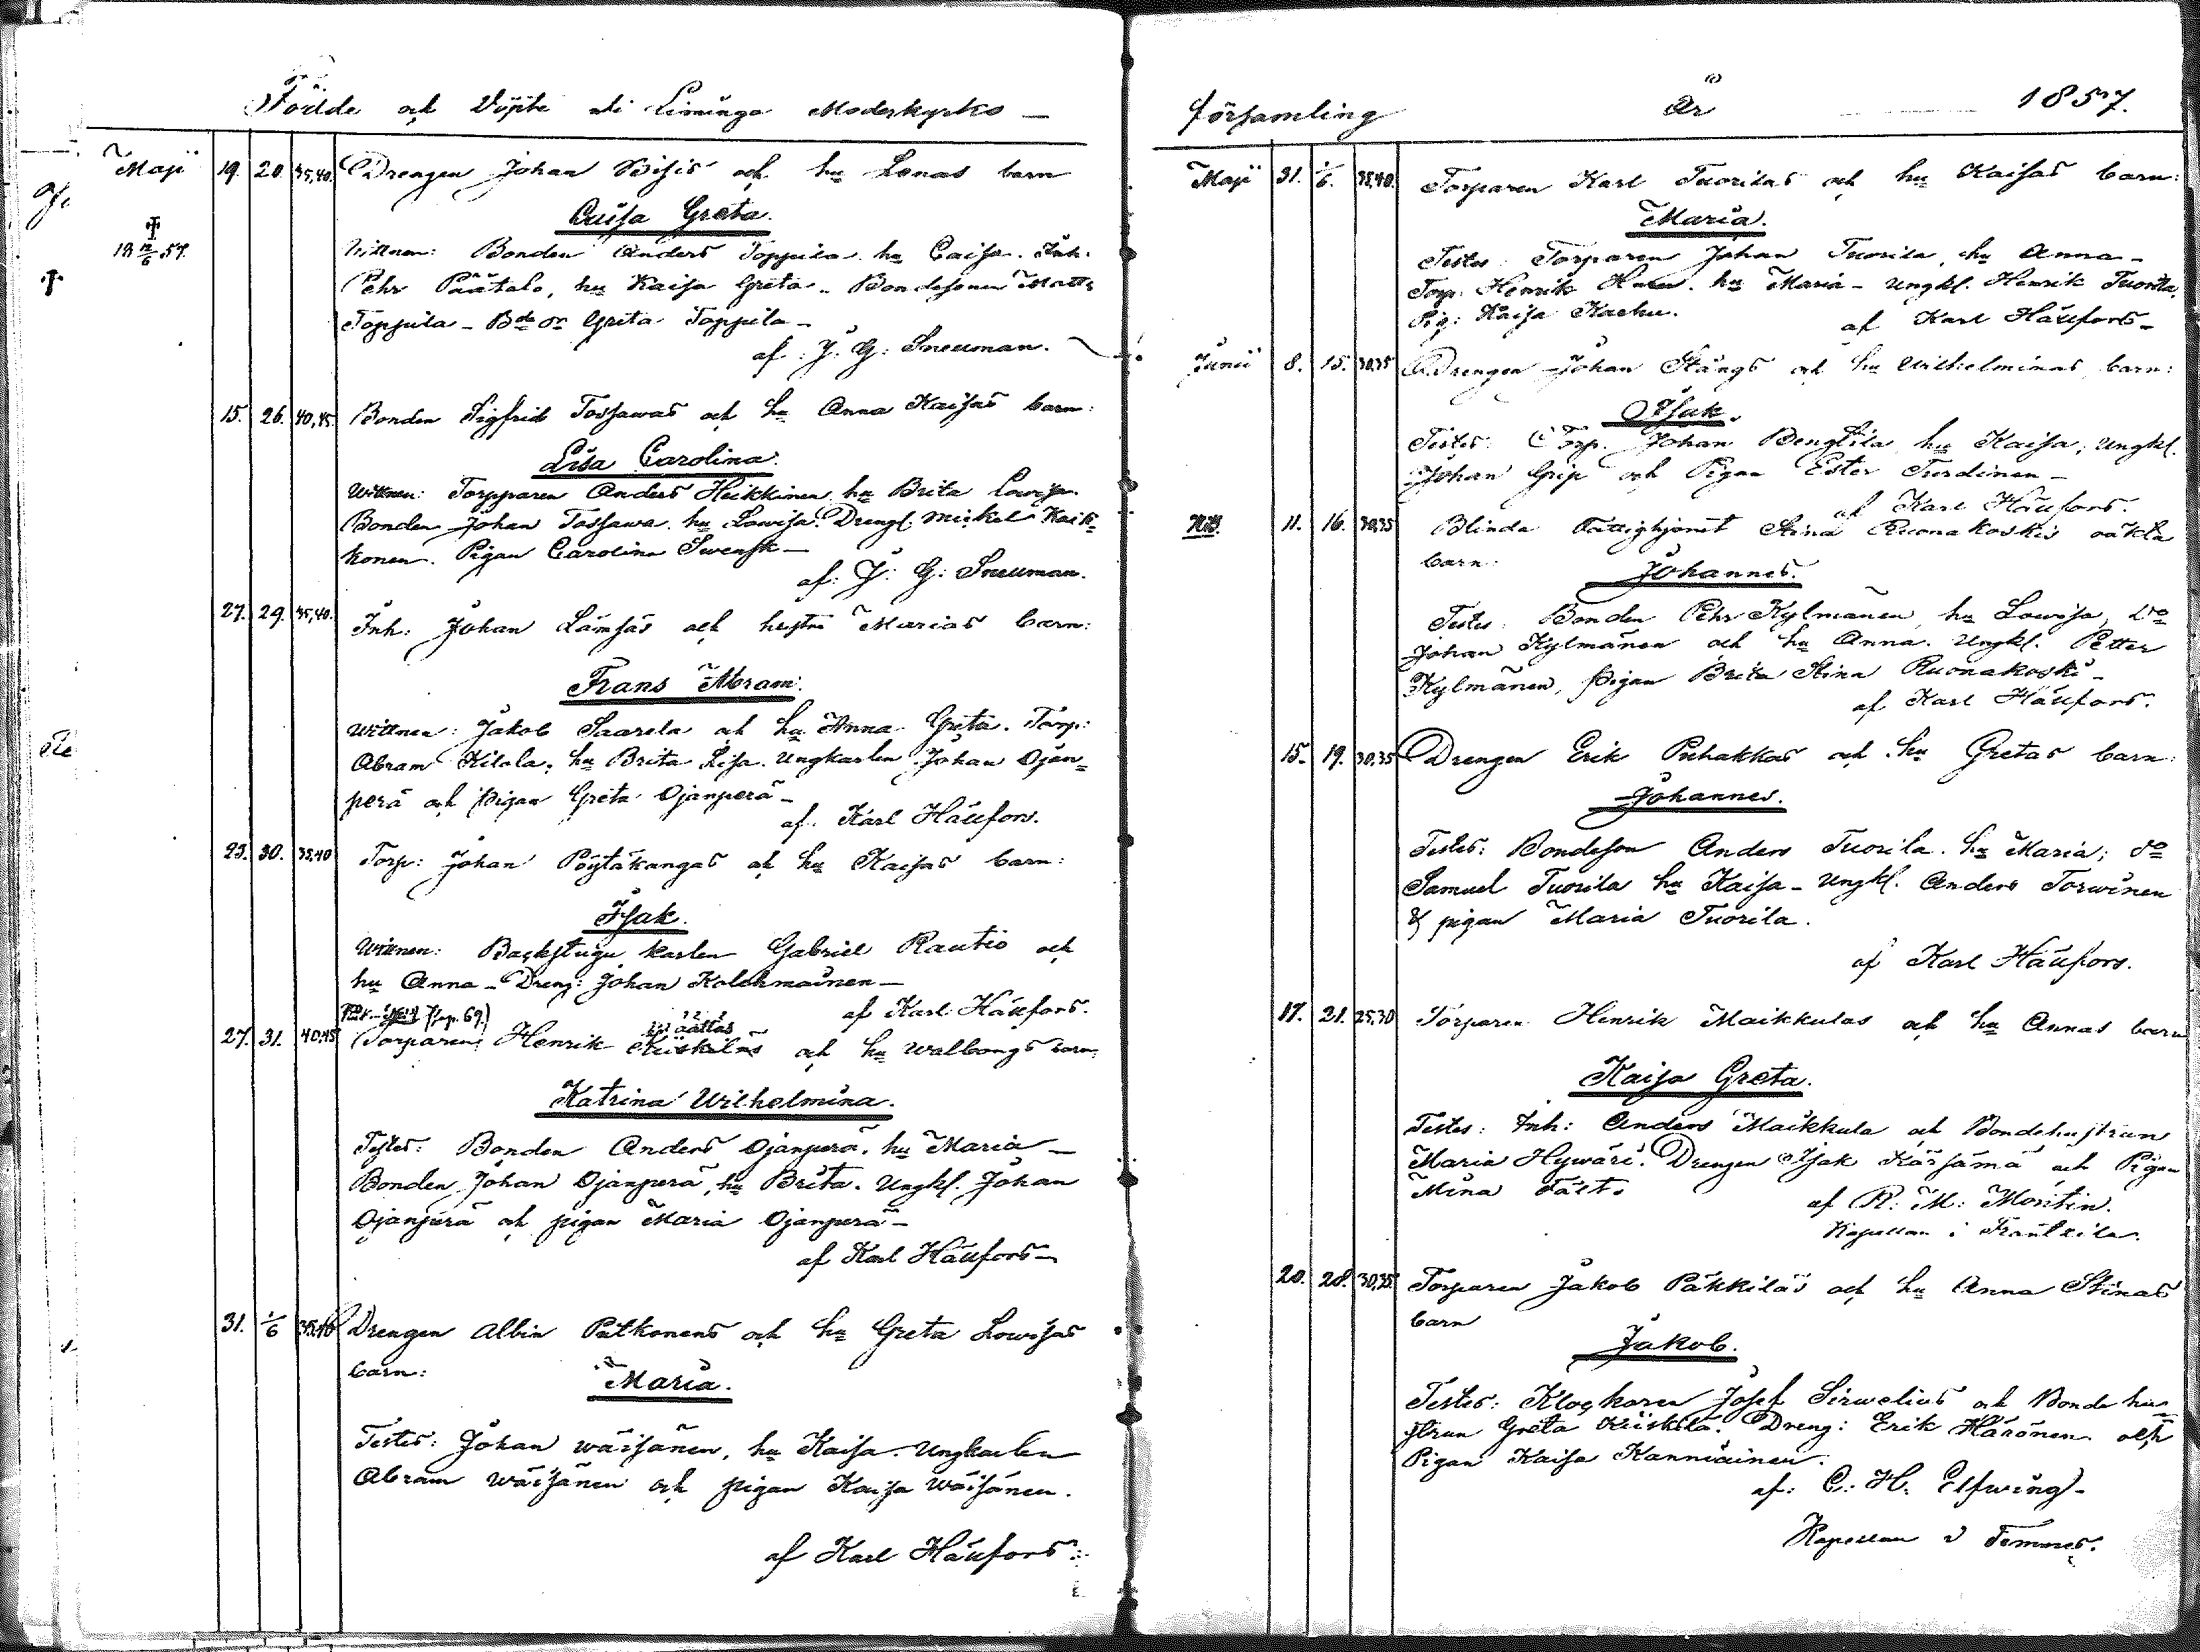 Födde och Döpte uti Limingo Moderkyrko –
Maji 19. 20. 35,40. Drengen Johan Bisis och hu Lenas barn
Caisa Greta.
18 12/6 57. Vittnen: Bonden Anders Toppila hu Caisa. Inh:
Pehr Päätalo, hu Kaisa Greta. Bondesonen Matts
Toppila – Bde dr Greta Toppila –
af: J: G: Sneuman.
15. 26. 40,45. Bonden Sigfrid Tossawas och hu Anna Kaisas barn:
Lisa Carolina.
Wittnen: Torpparen Anders Heikkinen hu Brita Lowisa.
Bonden Johan Tossawa hu Lowisa. Drengl. Mickel Kaik-
konen. Pigan Carolina Swensk –
af: J: G: Sneuman.
27. 29. 35,40. Inh: Johan Lämsäs och hustru Marias barn:
Frans Abram.
Wittnen: Jakob Saarela och hu Anna Greta. Torp:
Abram Kilala, hu Brita Lisa. Ungkarlen Johan Ojan-
perä och pigan Greta Ojanperä –
af. Karl Häufors.
23. 30. 35,40 Torp: Johan Pöytäkangas och hu Kaisas barn:
Isak.
Wittnen: Backstugu karlen Gabriel Rautio och
hu Anna – Dreng: Johan Kolehmainen –
af Karl Häufors.
pag. 69.)
Määttäs
27. 31. 40,45 Torparen Henrik Kiiskiläs och hu Walborgs barn:
Katrina Wilhelmina.
Testes: Bonden Anders Ojanperä, hu Maria –
Bonden Johan Ojanperä, hu Brita. Ungkl. Johan
Ojanperä och pigan Maria Ojanperä –
af Karl Häufors –
31. 1/6 35,40 Drengen Albin Putkonens och hu Greta Lowisas
barn:
Maria.
Testes: Johan Wäisänen, hu Kaisa. Ungkarlen
Abram Wäisänen och pigan Kaisa Wäisänen.
af Karl Häufors
församling År 1857.
Maji 31. 1/6. 35,40. Torparen Karl Tuorilas och hu Kaisas barn:
Maria.
Testes: Torparen Johan Tuorila, hu Anna –
Torp: Henrik hu Maria – Ungkl. Henrik Tuorila,
Pig: Kaisa Karhu.
af Karl Häufors –
Junii 8. 15. 30,35 Drengen Johan Stångs och hu Wilhelminas barn:
Isak.
Testes: Torp. Johan Bengtila hu Kaisa, Ungkl.
Johan Grip och Pigan Ester Turdinen –
af Karl Häufors.
11. 16. 30,35 Blinda fattighjonet Stina Ruonakoskis oäkta
barn:
Johannes.
Testes: Bonden Pehr Kylmänen, hu Lowisa, do
Johan Kylmänen och hu Anna. Ungkl. Petter
Kylmänen, pigan Brita Stina Ruonakoski –
af Karl Häufors.
15. 19. 30,35 Drengen Erik Puhakkas och hu Gretas barn:
Johannes.
Testes: Bondeson Anders Tuorila hu Maria; do
Samuel Tuorila hu Kaisa – Ungkl. Anders Torwinen
& pigan Maria Tuorila.
af Karl Häufors.
17. 21. 25,30 Torparen Henrik Maikkulas och hu Annas barn
Kaisa Greta.
Testes: Inh: Anders Maikkula och Bondehustrun
Maria Hywäri. Drengen Isak Kärsämä och Pigan
Mina Fält.
af R: M: Montin.
Kapellan i Frantsila.
20. 28. 30,35. Torparen Jakob Päkkiläs och hu Anna Stinas
barn
Jakob.
Testes: Klockaren Josef Sirwelius och Bonde hu-
strun Greta Kiiskilä. Dreng: Erik Härönen och
Pigan Kaisa Kanniainen.
af: C: H: Elfwing –
Kapellan i Temmes.